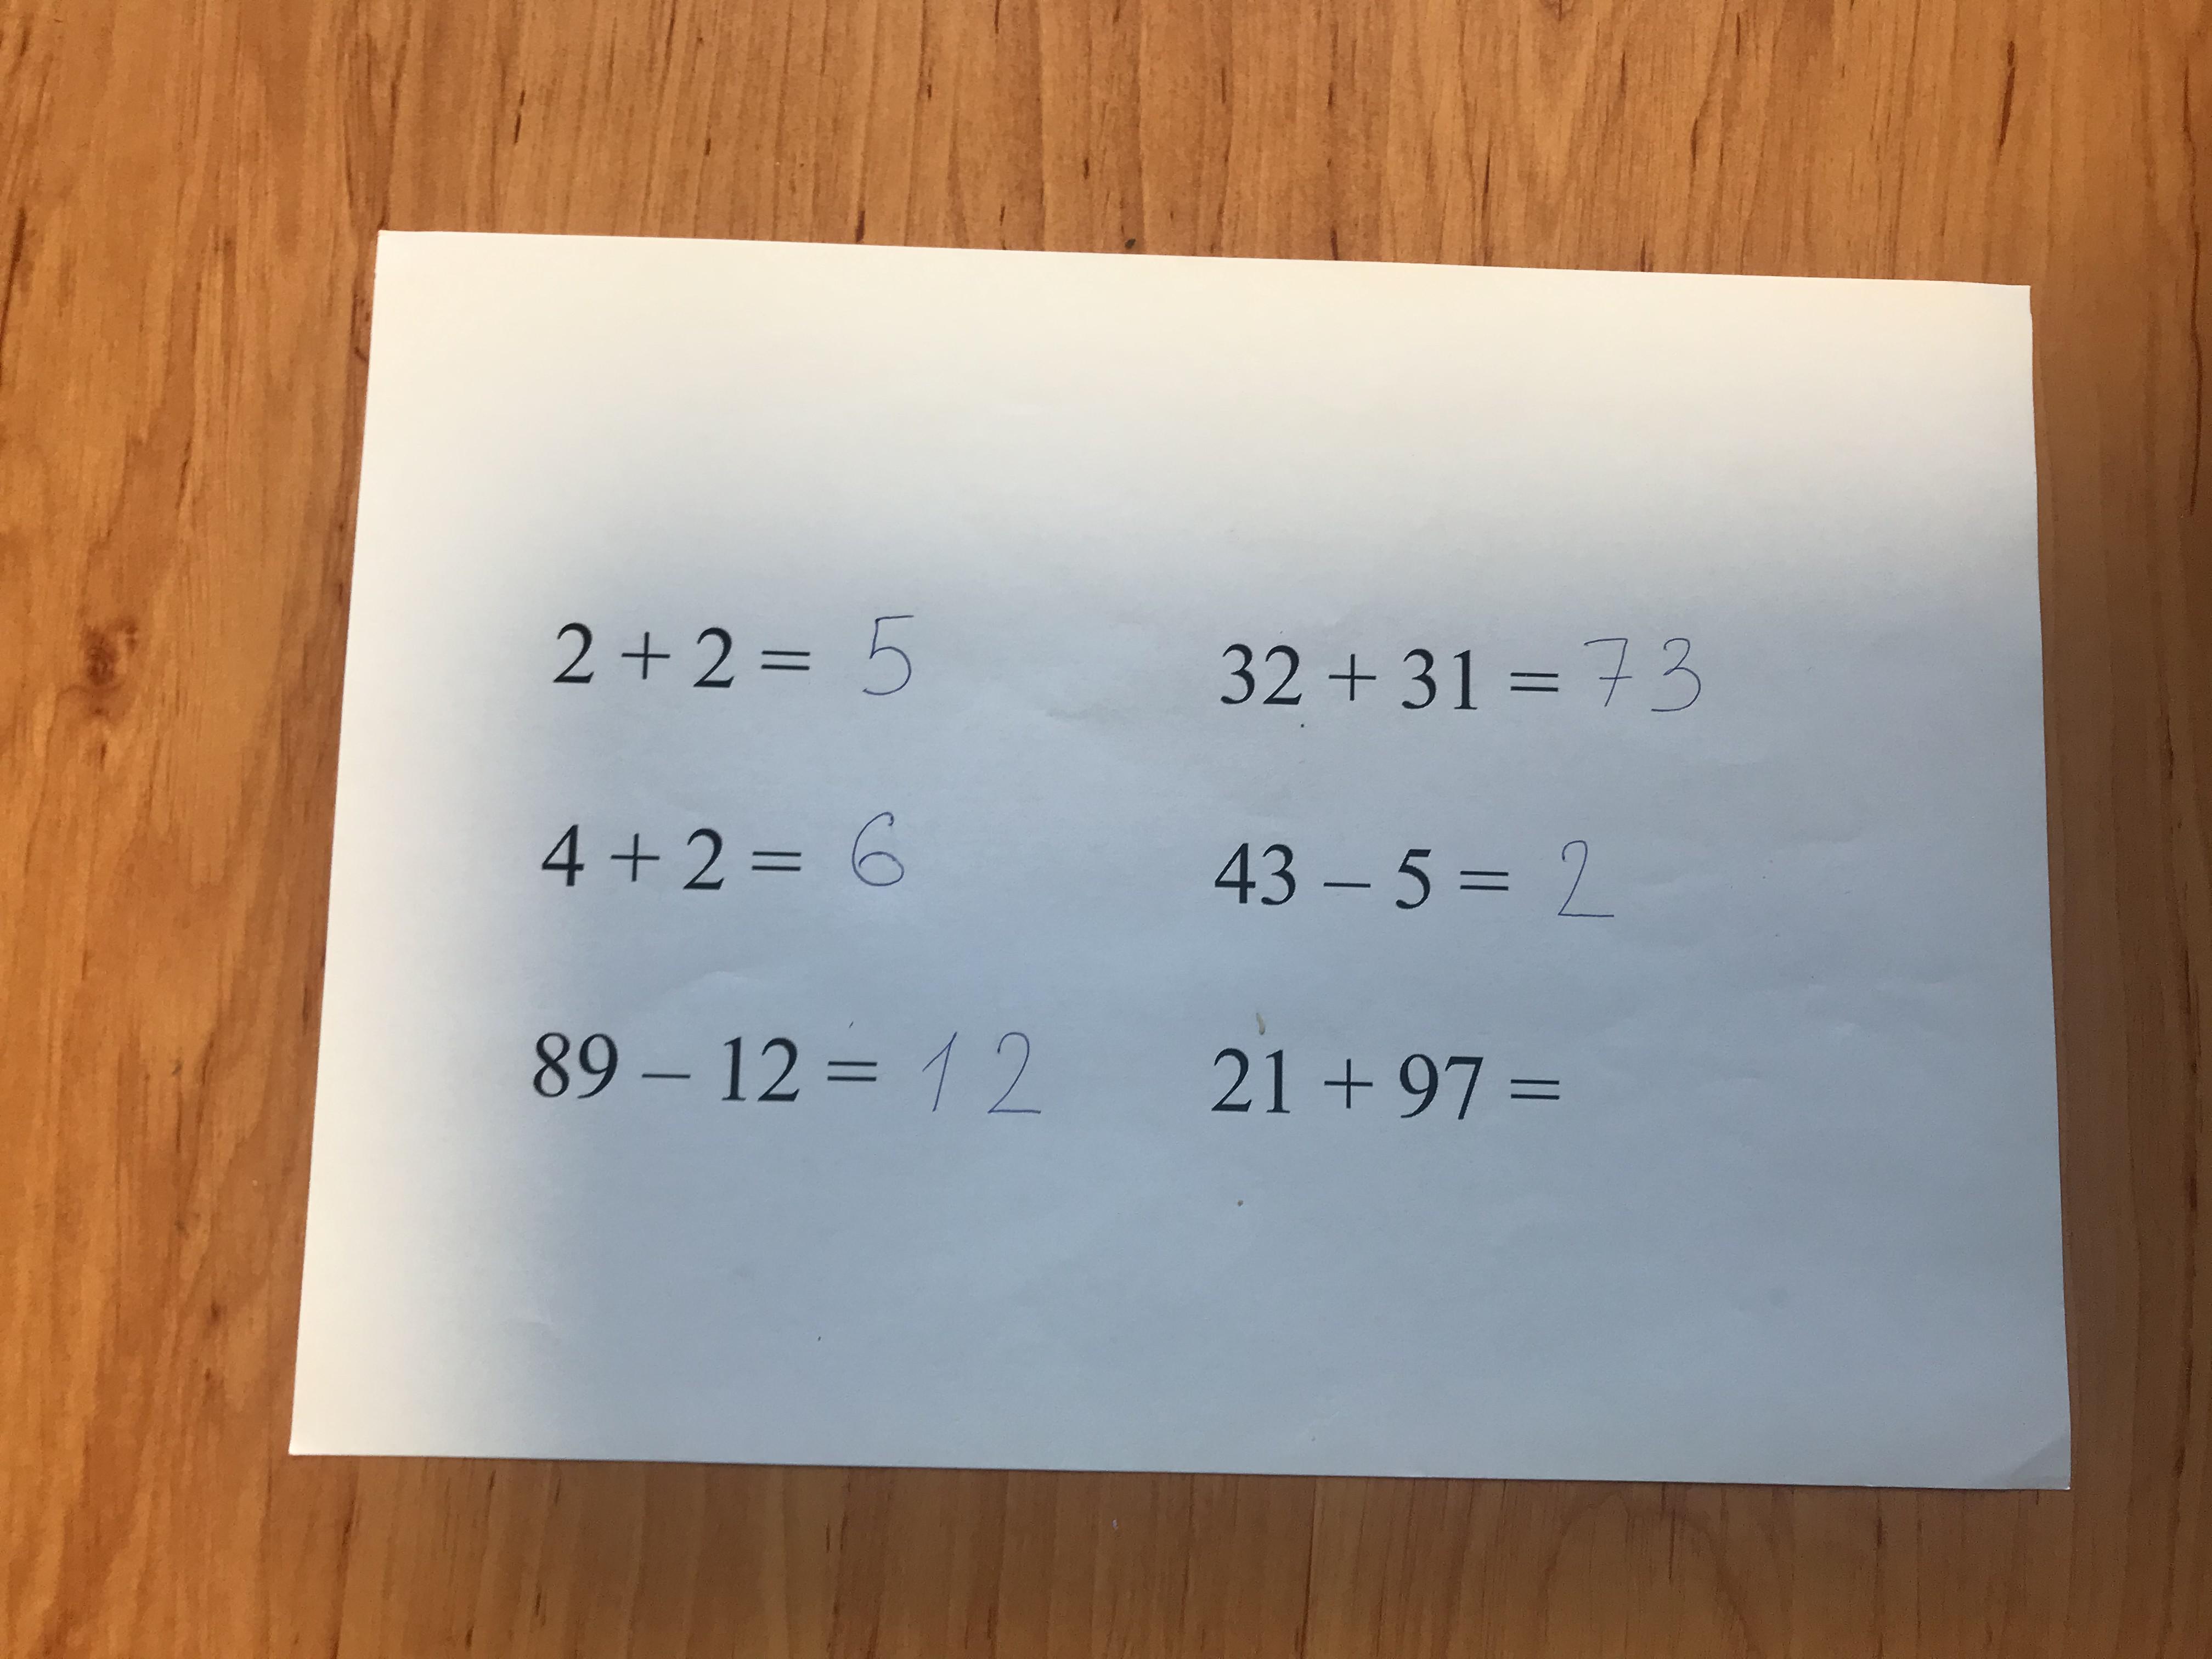 2 + 2 = 5
4 + 2 = 6
89 – 12 = 12
32 + 31 = 73
43 – 5 = 2
21 + 97 =